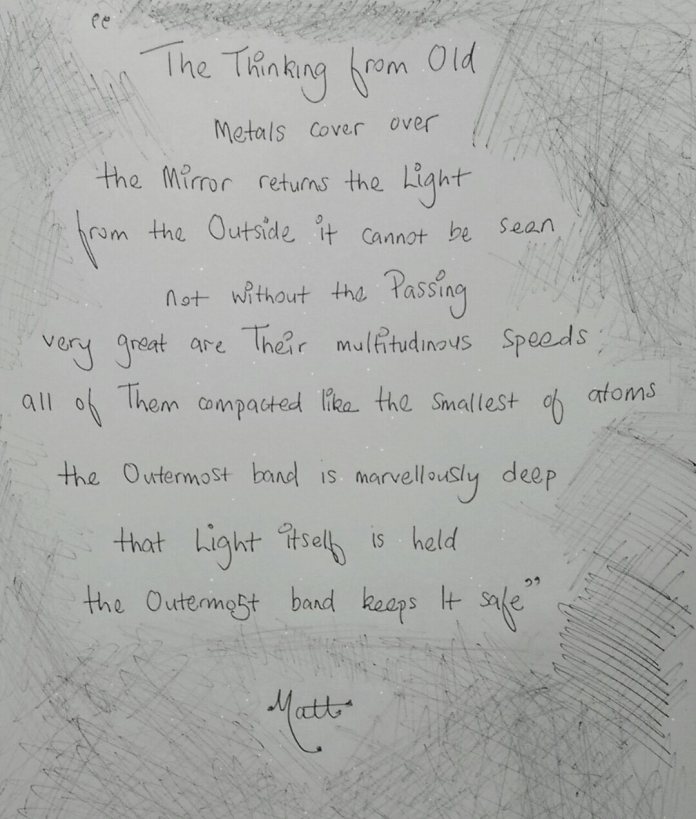 "The Thinking from Old
Metals cover over
the Mirror returns the Light
from the Outside it cannot be seen
not without the Passing
very great are Their multitudinous speeds
all of Them compacted like the smallest of atoms
the Outermost band is marvellously deep
that Light itself is held
the Outermost band keeps It safe"
Matt